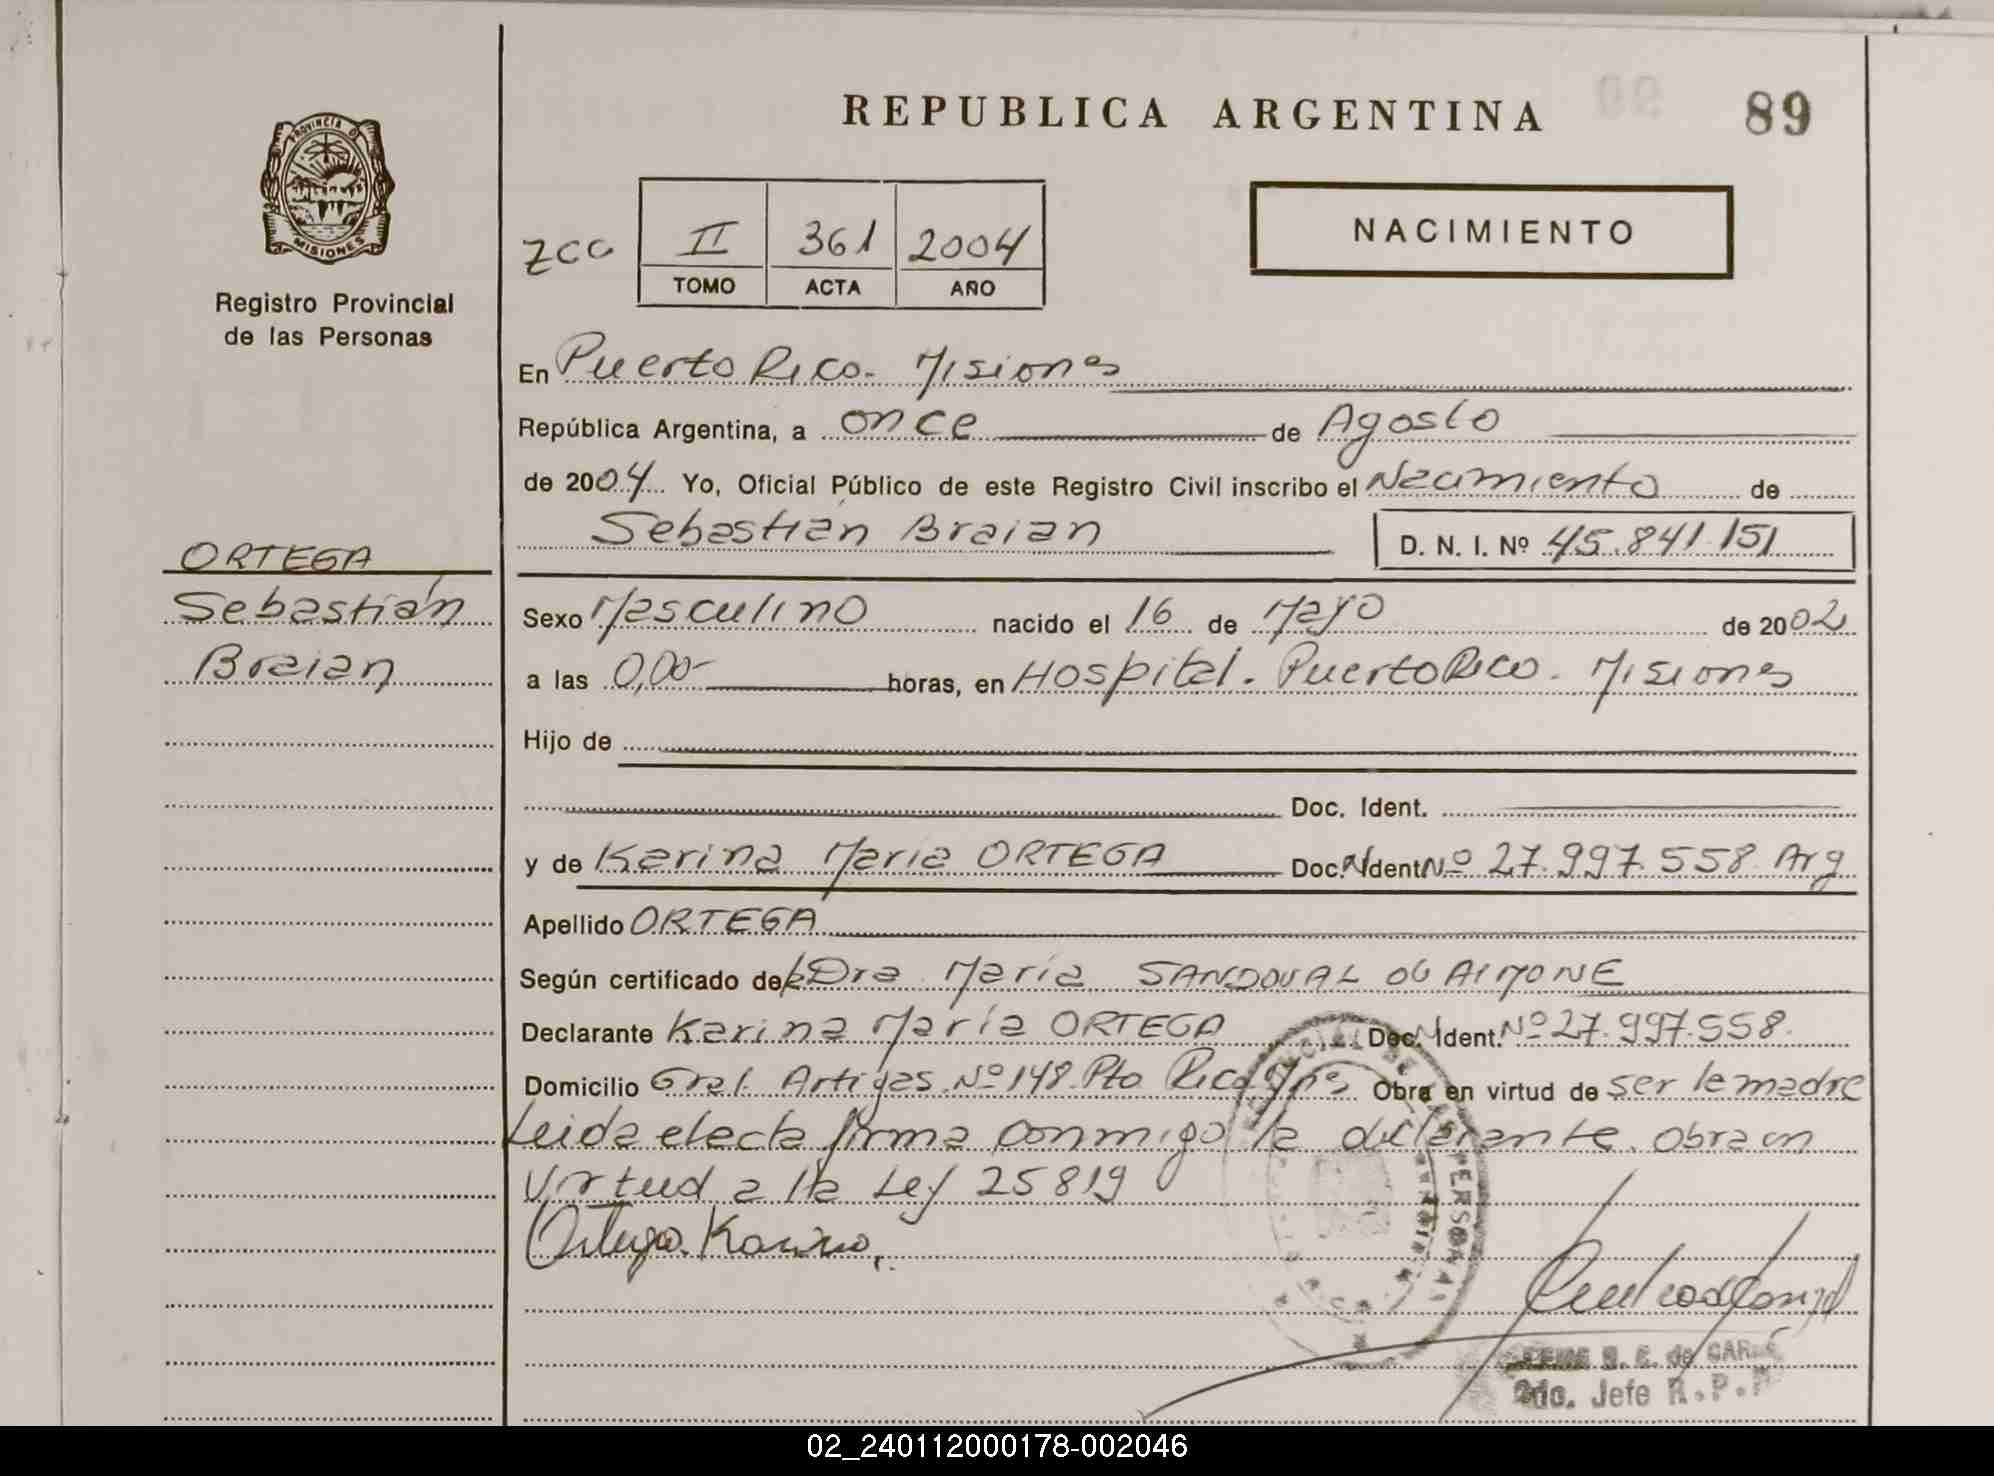 REPUBLICA ARGENTINA
89
PROVINCIA D
MISIONES
Registro Provincial
de las Personas
II 361 2004
TOMO ACTA AÑO
NACIMIENTO
En Puerto Rico. Misiones
República Argentina, a once de Agosto
de 2004 Yo, Oficial Público de este Registro Civil inscribo el Nacimiento de
Sebastián Braian D. N. I. Nº 45.841.151
ORTEGA
Sebastián
Braian
Sexo Masculino nacido el 16 de Mayo de 2002
a las 0,00- horas, en Hospital. Puerto Rico. Misiones
Hijo de
Doc. Ident.
y de Karina Maria ORTEGA Doc. N Ident Nº 27.997.558 Arg
Apellido ORTEGA
Según certificado de Dra María SANDOVAL de AIMONE
Declarante Karina María ORTEGA Doc. N Ident. Nº 27.997.558.
Domicilio Gral. Artigas Nº 148 Pto Rico Mnes Obra en virtud de ser la madre
Leida el acta firma conmigo la declarante. Obra en
virtud a la Ley 25819
Ortega Karina
S. E. de
2do. Jefe R.P.
02_240112000178-002046